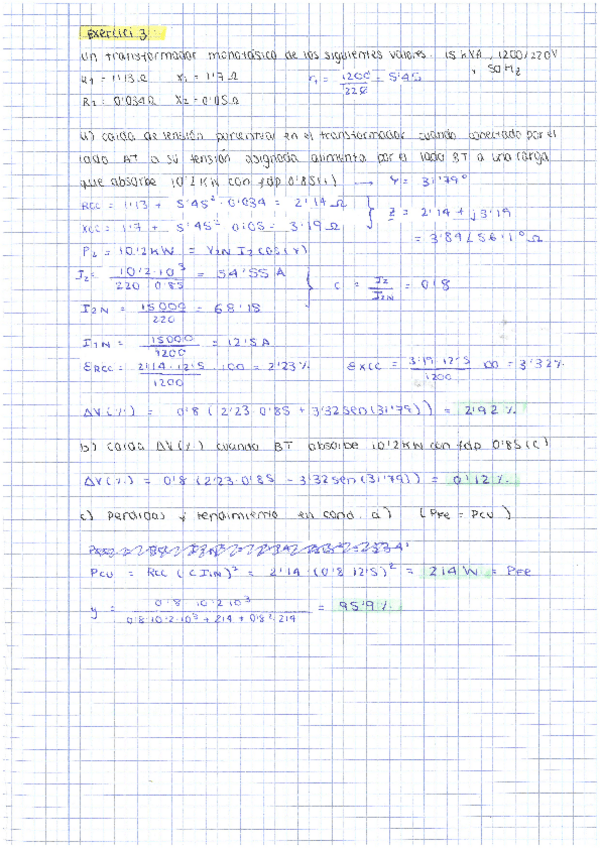 exercici 3
Un transformador monofásico de los siguientes valores. 15 kVA, 1200/220V
R1 = 1'13 Ω X1 = 1'7 Ω r1 = 1200/220 = 5'45 y 50 Hz
R2 = 0'034Ω X2 = 0'05 Ω
a) caída de tensión porcentual en el transformador cuando conectado por el
lado AT a su tensión asignada alimenta por el lado BT a una carga
que absorbe 10'2 KW con fdp 0'85(i) → φ = 31'79º
RCC = 1'13 + 5'45² · 0'034 = 2'14 Ω
XCC = 1'7 + 5'45² · 0'05 = 3'19 Ω } Z = 2'14 + j3'19
= 3'84∠56'1º Ω
P2 = 10'2KW = V2N I2 cos(φ)
I2 = 10'2·10³ / 220 · 0'85 = 54'55 A
I2N = 15000/220 = 68'18 } c = I2/I2N = 0'8
I1N = 15000/1200 = 12'5A
εRCC = 2'14 · 12'5 / 1200 · 100 = 2'23% εXCC = 3'19 · 12'5 / 1200 · 100 = 3'32%
ΔV(%) = 0'8 (2'23 · 0'85 + 3'32 sen(31'79)) = 2'92 %
b) caída ΔV(%) cuando BT absorbe 10'2 KW con fdp 0'85(c)
ΔV(%) = 0'8 (2'23 · 0'85 - 3'32 sen(31'79)) = 0'12 %
c) Perdidas y rendimiento en cond. a) (PFe = PCu)
PCU = RCC (C I1N)² = 2'14 · (0'8 · 12'5)² = 214 W = PFE
y = 0'8 · 10'2·10³ / 0'8·10'2·10³ + 214 + 0'8²·214 = 95'9 %